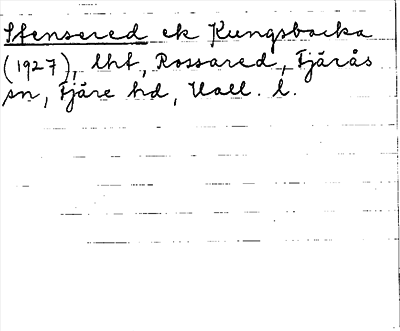 Stensered ek Kungsbacka
(1927), lht, Rossared, Fjärås
sn, Fjäre hd, Hall. l.